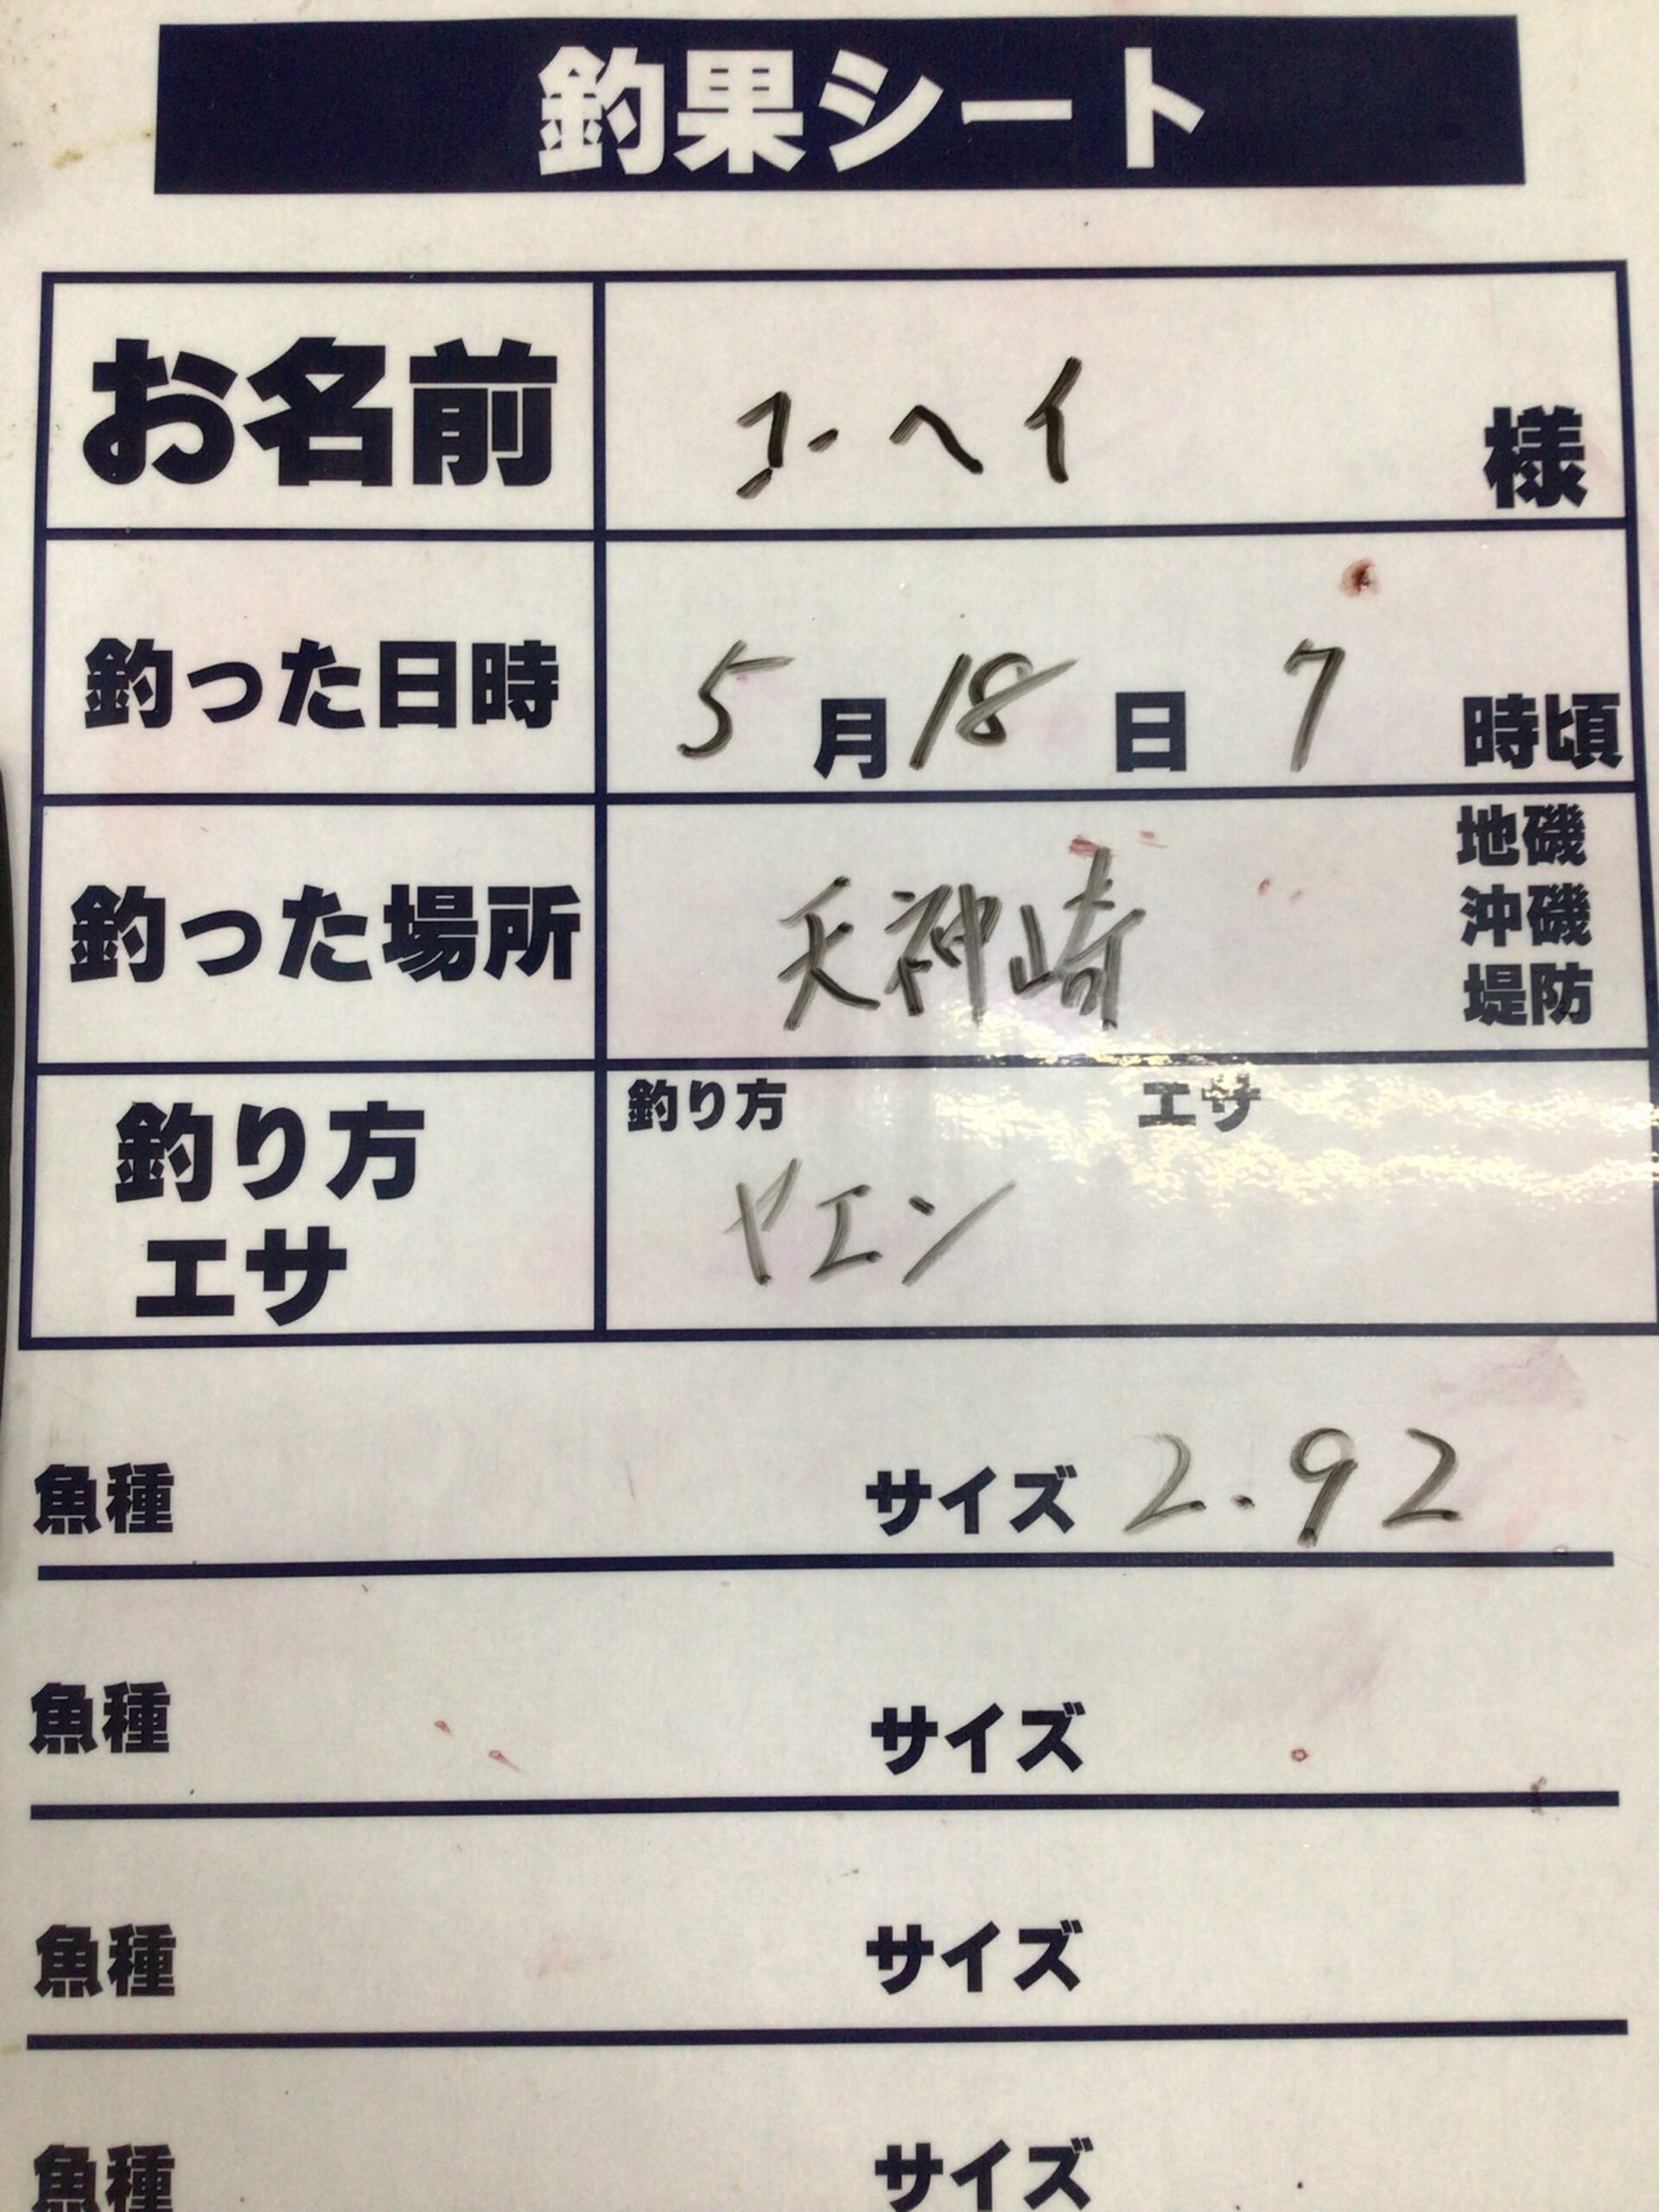 釣果シート
お名前 コーヘイ 様
釣った日時 5月18日 7時頃
釣った場所 天神崎 地磯
沖磯
堤防
釣り方 エサ
釣り方
エサ
ヤエン
魚種 サイズ 2.92
魚種 サイズ
魚種 サイズ
魚種 サイズ